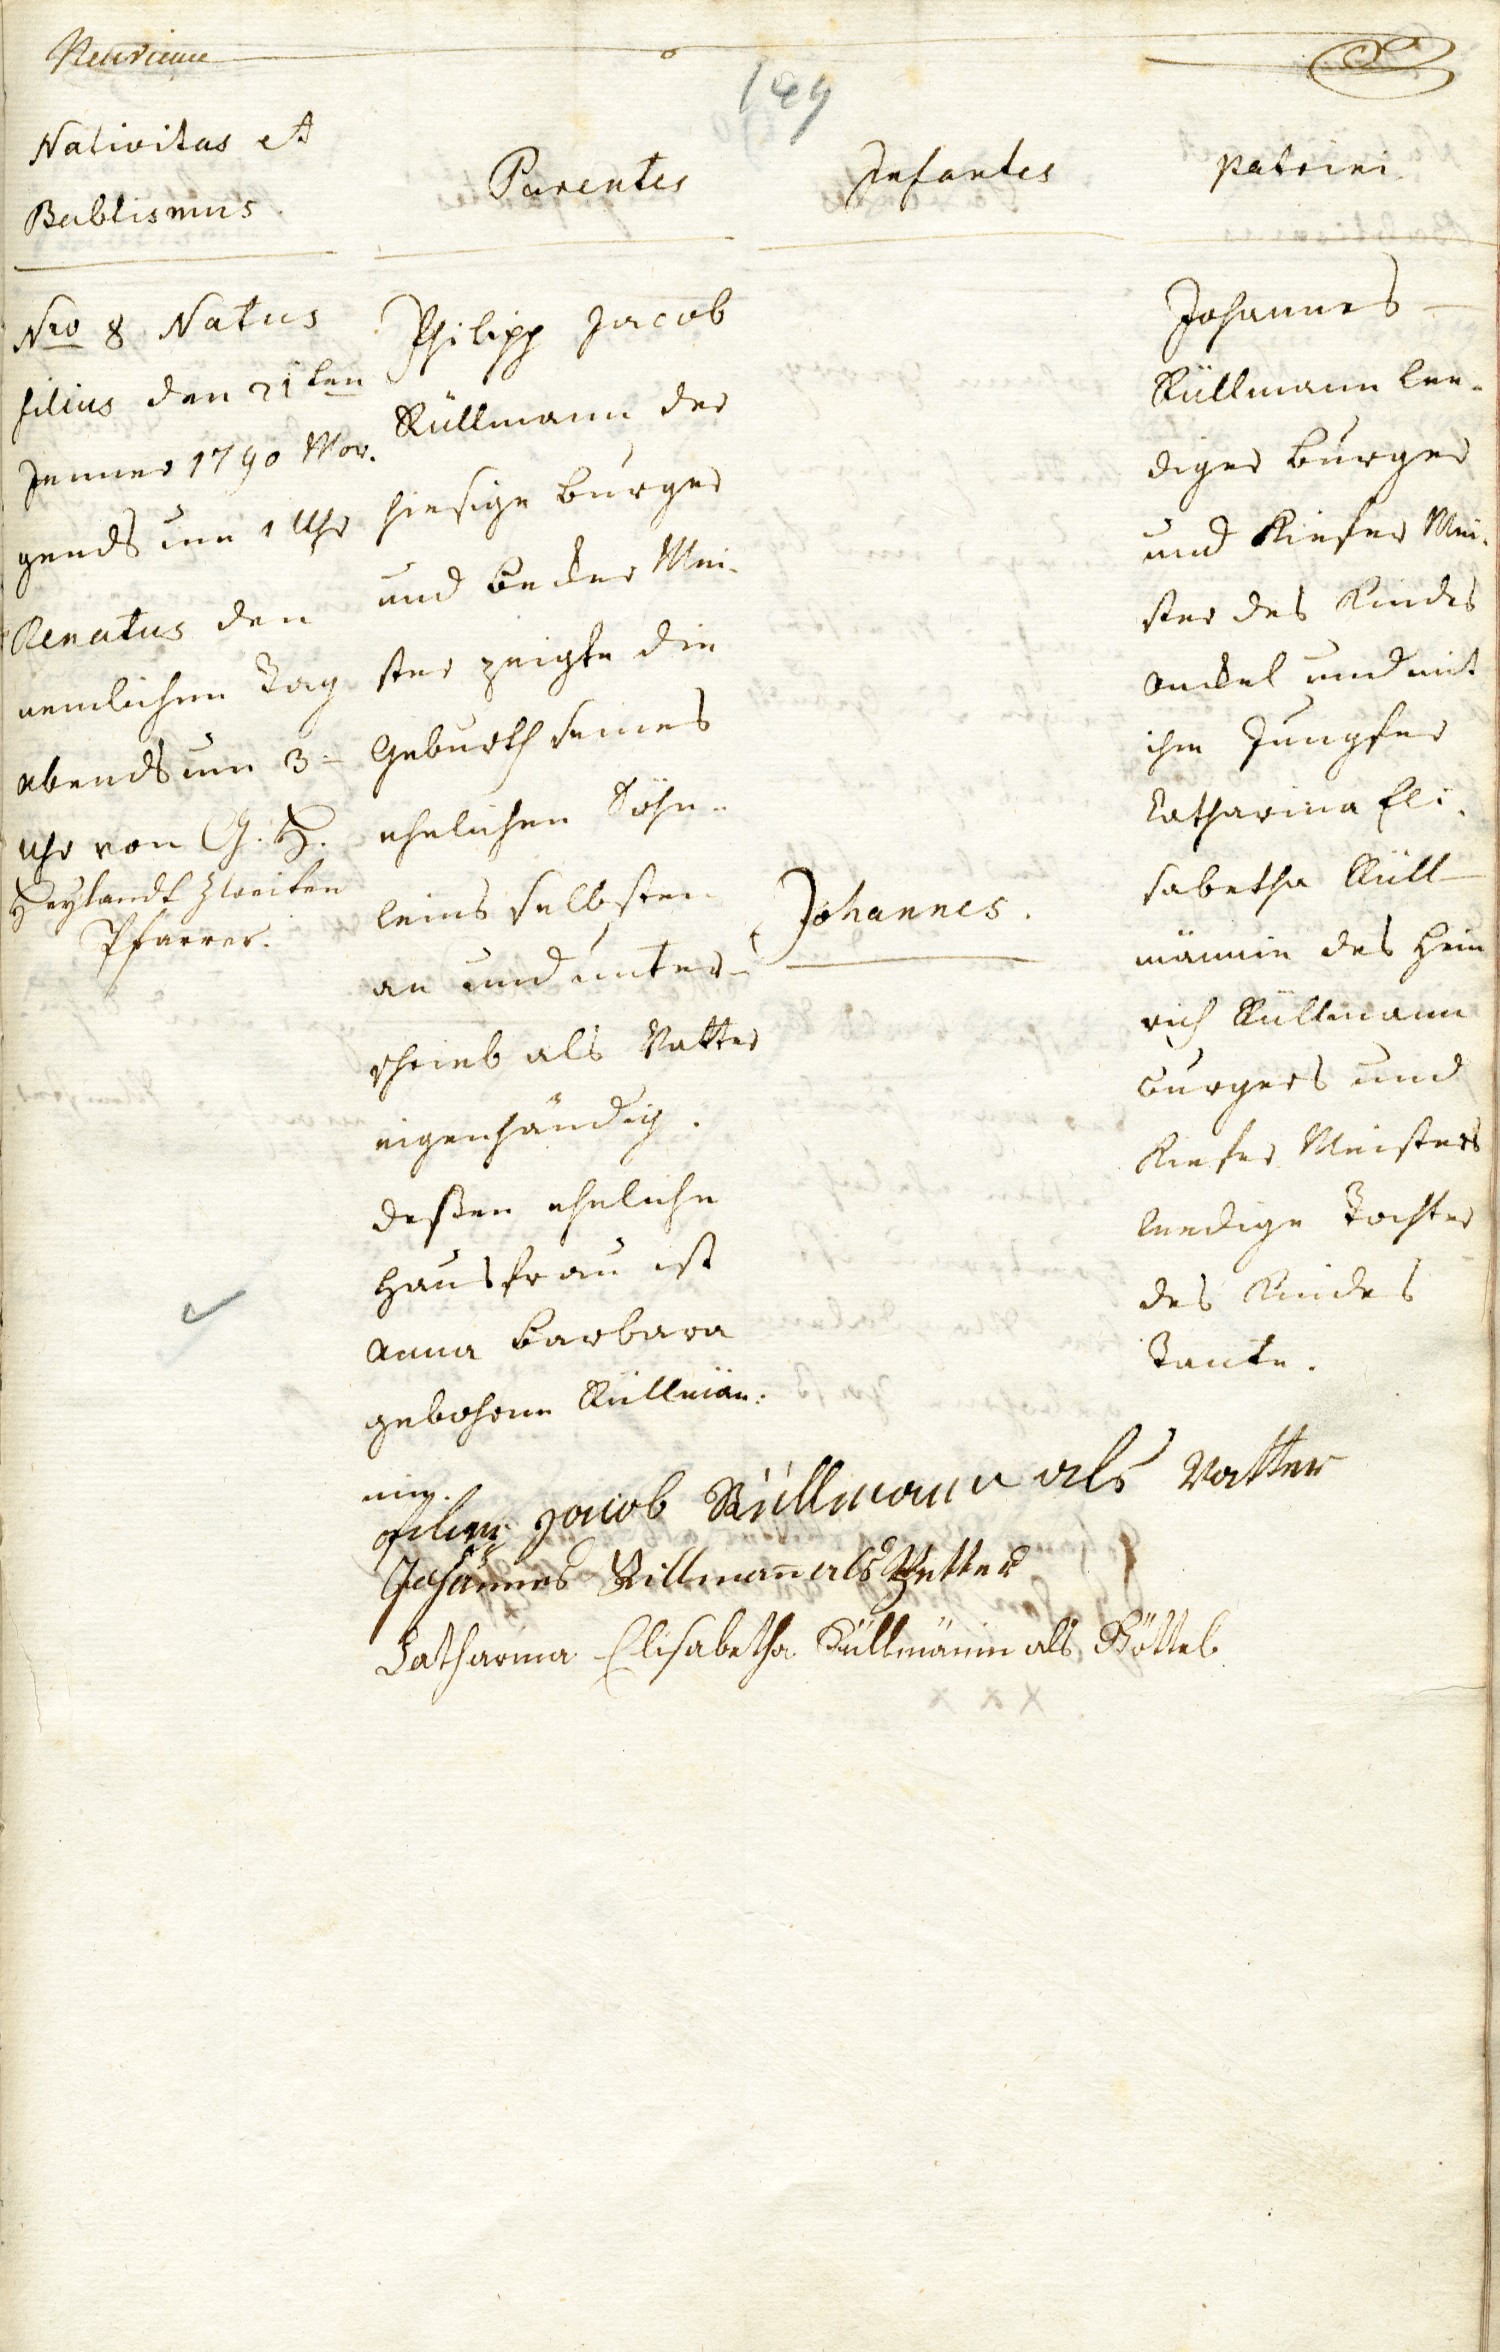 149
Nativitas et
Babtismus
Parentes
Infantes
Patrini
Nro 8 Natus
filius den 21ten
Jenner 1790 Mor-
gends um 1 Uhr
Renatus den
nemlichen Tag
abends um 3-
Uhr von G. H.
Heylandt Zweiten
Pfarrer.
Philipp Jacob
Rüllmann der
hiesige burger
und becker Mei-
ster zeigte die
Geburth seines
ehelichen Söhn-
leins selbsten
an und unter-
schrieb als Vatter
eigenhändig.
deßen eheliche
Hausfrau ist
Anna Barbara
gebohrne Rüllmän-
nin.
Johannes.
Johannes
Rüllmann lee-
diger burger
und Kiefer Mei-
ster des Kindes
Onckel und mit
ihm Jungfer
Catharina Eli-
sabetha Rüll-
männin des Hein
rich Rüllmann
burgers und
Kiefer Meisters
leedige Tochter
des Kindes
Tante.
Jacob Rüllmann als Vatter
Johannes Rillmann als Petter
Catharina Elisabetha Rüllmänin als Göttel